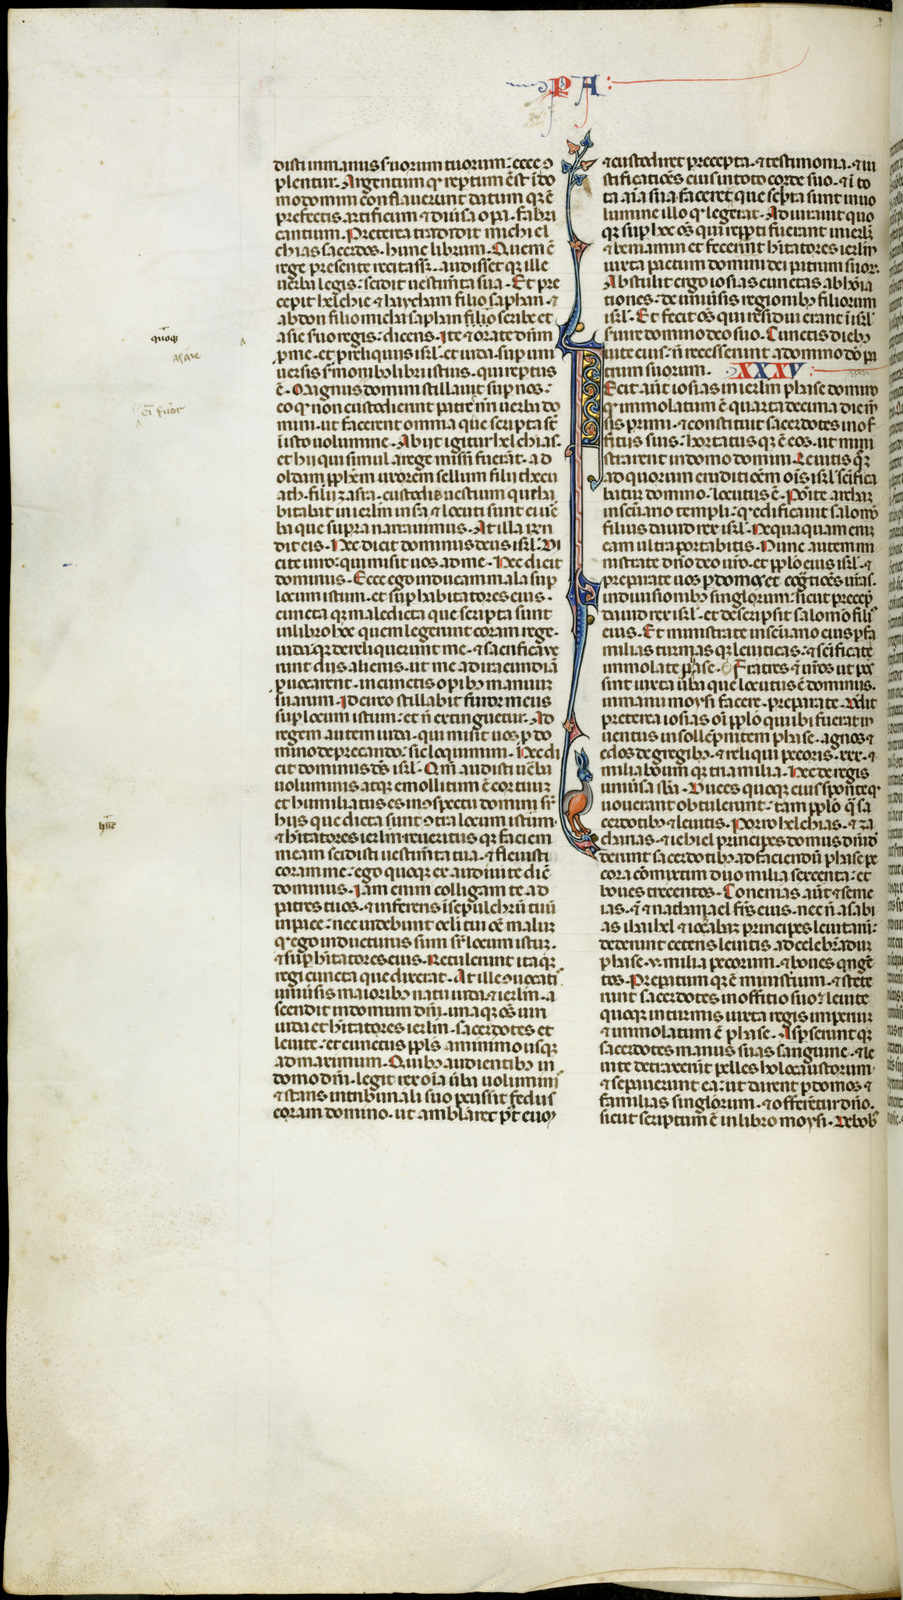 PA
disti in manus servorum tuorum: ecce ꝯ
plentur. Argentum qꝫ reptum est ido
mo domini conflaverunt datum qꝫ ē
prefectis artificum ⁊ divsa opa. fabri
cantium. Preterea tradidit michi el
chias sacerdos. hunc librum. Quem ē
rege presente recitasset. audisset qꝫ ille
verba legis: scidit vestimta sua. Et pre
cepit helchie ⁊ haycham filio saphan. ⁊
abdon filio micha saphan filio scribe et
asie suo regis: dicens. Ite ⁊ orate dnm
pme. et preliquiis isrl. et iuda. sup uni
versis smonibꝫ libri istius. qui reptus
ē. Magnus domini stillavit sup nos:
eo qꝫ non custodierint patres nri verba do
mini. ut facerent omnia que scripta st
i isto volumine. Abiit igitur helchias.
et hii qui simul a rege missi fuerat. ad
oldam pphetem uxorem sellum filii thecu
ath. filii zasra. custodis vestium que ha
bitabat in ierlm insa ⁊ locuti sunt ei ve
ba que supra narravimus. At illa rn
dit eis. Hec dicit dominus deus isrl. Di
cite viro: qui misit vos ad me. Hec dicit
dominus. Ecce ego inducam mala sup
locum istum. et sup habitatores eius.
cuncta qꝫ maledicta que scripta sunt
in libro hoc quem legerunt coram rege
iuda. qꝫ dereliquerunt me. ⁊ sacrificave
runt diis alienis. ut me ad iracundia
pvocarent. in cunctis opibꝫ manuum
suarum. Idcirco stillabit furor meus
sup locum istum: et n extinguetur. Ad
regem autem iuda. qui misit vos p do
mino deprecando: sic loquimini. Hec di
cit dominus ds isrl. Qm audisti verba
voluminis. atqꝫ emollitum ē cor tuum
et humiliatus es in ꝯspectu domini sr
hiis que dicta sunt ꝯtra locum istum.
⁊ hitatores ierlm. reveritus qꝫ faciem
meam scidisti vestimta tua. ⁊ flevisti
coram me: ego quoqꝫ exaudivi te dic
dominus. Iam enim colligam te ad
patres tuos. ⁊ inferens i sepulchru tuu
in pace: nec videbunt oculi tui oe malum
qꝫ ego inducturus sum sr locum istum.
⁊ sup hitatores eius. Retulerunt itaqꝫ
regi cuncta que dixerat. At ille ꝯvocatis
univsis maioribꝫ natu iuda. ⁊ ierlm. a
scendit in domum dni. una qꝫ os viri
iuda et hitatores ierlm. sacerdotes et
levite. et cunctus ppls. a minimo usqꝫ
ad maximum. Quibꝫ audientibꝫ in
domo dni. legit rex oia vba voluminis
⁊ stans in tribunali suo pcussit fedus
coram domino. ut amblaret pt eum
⁊ custodiret precepta. ⁊ testimonia. ⁊ iu
stificatioes eius in toto corde suo. ⁊ i to
ta aia sua. faceret que scpta sunt in vo
lumine illo qꝫ legerat. Adiuravit quo
qꝫ sup hoc os qui reppti fuerant i ierlm
⁊ beniamin et fecerunt hitatores ierlm
iuxta pactum domini dei patrum suor.
Abstulit ergo iosias cunctas abhoia
tiones. de univsis regionibꝫ filiorum
isrl. Et fecit os qui residui erant i isrl
servire domino deo suo. Cunctis diebꝫ
vite eius. n recesserunt a domino do pa
trum suorum. XXXV
Fecit aut iosias in ierlm phase domino
qꝫ immolatum ē quarta decima die m
sis primi. ⁊ constituit sacerdotes in of
fitiis suis. hortatus qꝫ ē eos. ut mini
strarent in domo domini. Levitis qꝫ
ad quorum eruditioem ois isrl scifica
batur domino. locutus ē. Ponite archam
in scuario templi. qꝫ edificavit salomo
filius david rex isrl. Nequaquam enim
eam ultra portabitis. Nunc autem mi
nistrate dno deo vro. et pplo eius isrl. ⁊
preparate vos p domos et cognatoes vras.
in divisionibꝫ singlorum. sicut precepit
david rex isrl. et descripsit salomo fili
eius. Et ministrate in scuario eius p fa
milias turmas qꝫ leviticas. ⁊ scificate
immolate phase. Fratres ⁊ vros ut pos
sint iuxta vba que locutus ē dominus.
in manu moysi facere. preparate. Dedit
preterea iosias oi pplo qui ibi fuerat in
ventus in sollempnitem phase. agnos ⁊
edos de gregibꝫ. ⁊ reliqui pecoris. xxx. ⁊
milia boum qꝫ tria milia. Hec de regis
univsa sba. Duces quoqꝫ eius sponte qꝫ
voverant obtulerunt: tam pplo qꝫ sa
cerdotibꝫ ⁊ levitis. Porro helchias. ⁊ za
charias. ⁊ iehiel principes domus dni de
derunt sacerdotibꝫ ad faciendu phase pe
cora comixtim duo milia sexcenta: et
boves trecentos. Conenias. aut ⁊ seme
ias. ⁊ nathanael frs eius. necn asabi
as. ihaihel ⁊ iozabaz principes levitarum:
dederunt ceteris levitis ad celebradum
phase. v. milia pecorum. ⁊ boves qnge
tos. Prepatum qꝫ ē ministium. ⁊ stete
runt sacerdotes in offitio suo. ⁊ levite
quoqꝫ in turmis iuxta regis imperium
⁊ immolatum ē phase. Aspserunt qꝫ
sacerdotes manus suas sanguine. ⁊ le
vite detraxerunt pelles holocaustorum
⁊ sepaverunt ea: ut darent p domos ⁊
familias singlorum. ⁊ offerentur dno.
sicut scriptum ē in libro moysi. De bobꝫ
quoqꝫ